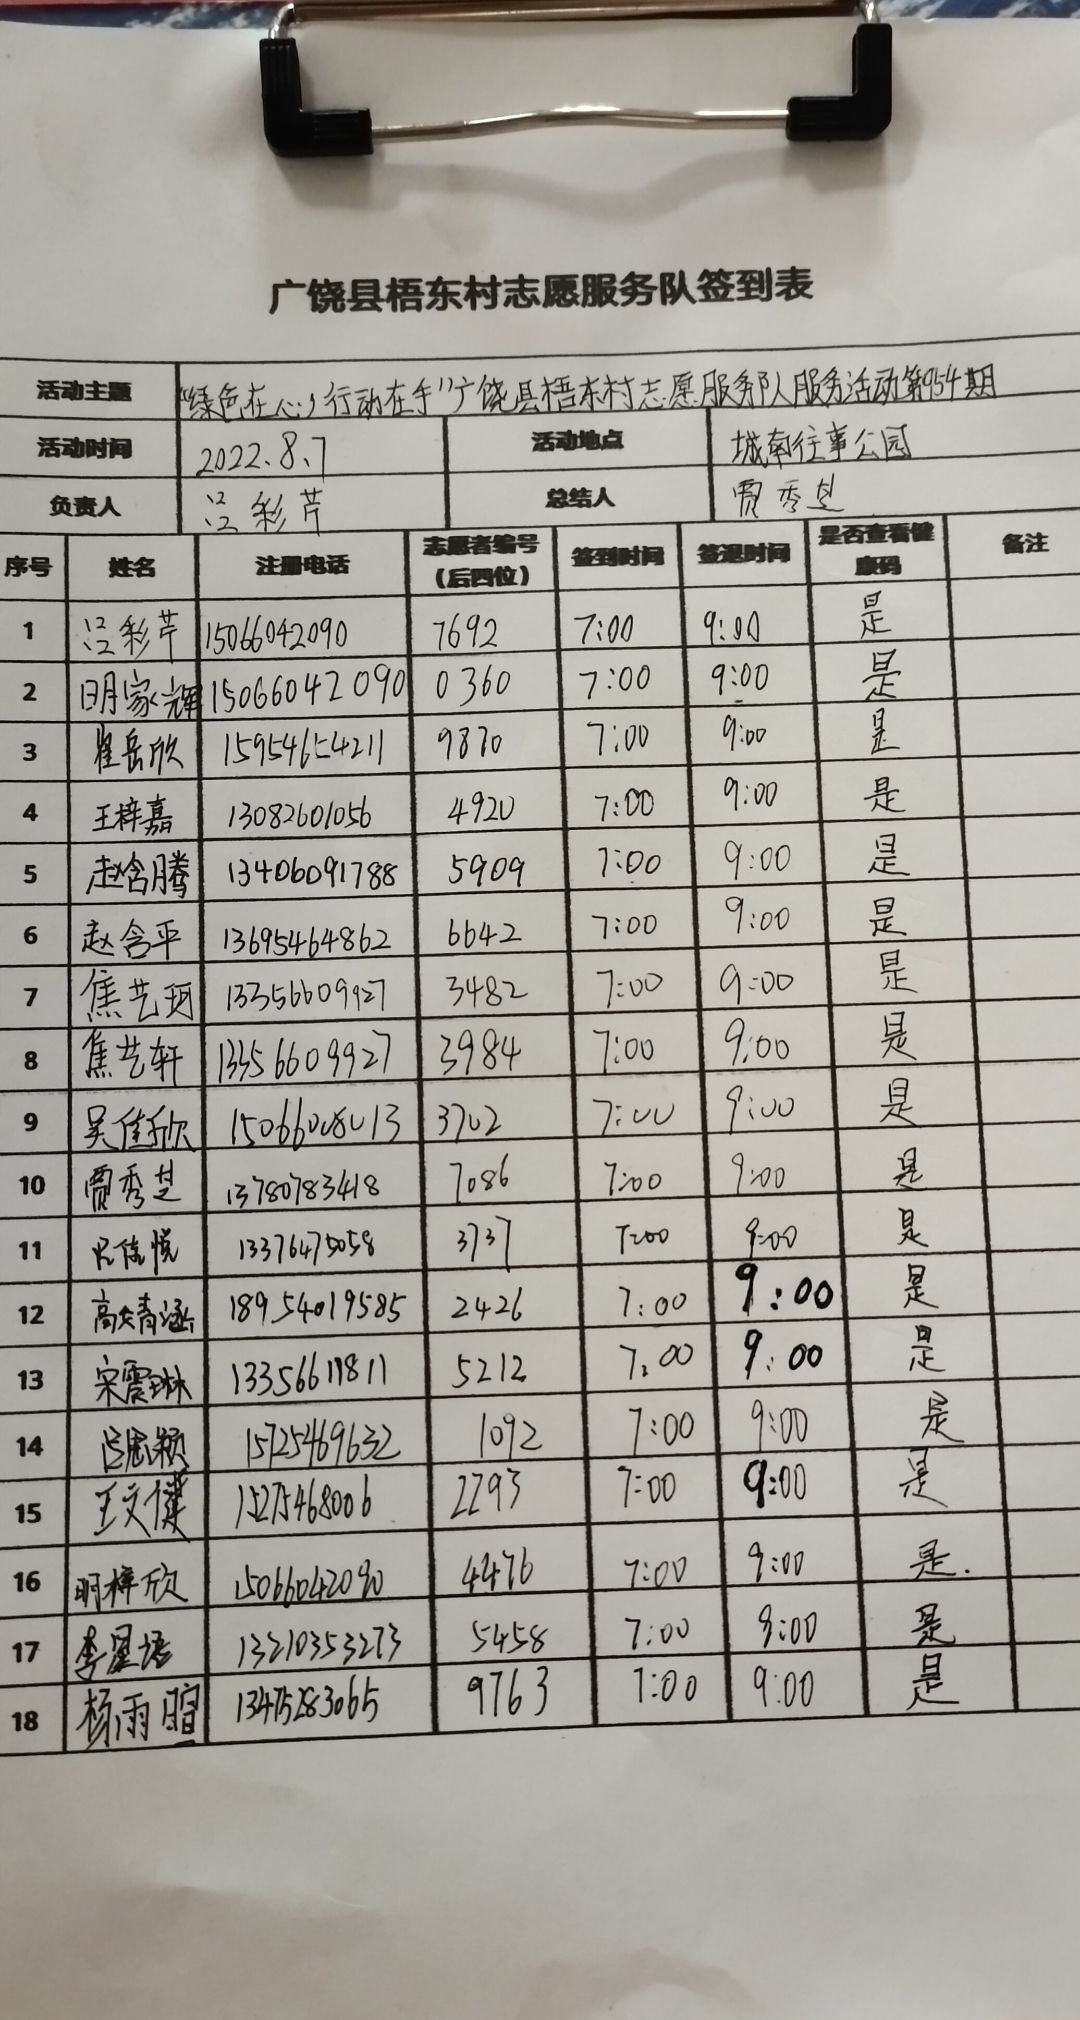 广饶县梧东村志愿服务队签到表
活动主题 “绿色在心,行动在手”广饶县梧东村志愿服务队服务活动第954期
活动时间 2022.8.7 活动地点 城南往事公园
负责人 吕彩芹 总结人 贾秀芝
序号 姓名 注册电话 志愿者编号（后四位） 签到时间 签退时间 是否查看健康码 备注
1 吕彩芹 15066042090 7692 7:00 9:00 是
2 明家辉 15066042090 0360 7:00 9:00 是
3 崔岳欣 15954654211 9870 7:00 9:00 是
4 王梓嘉 13082601056 4920 7:00 9:00 是
5 赵含腾 13406091788 5909 7:00 9:00 是
6 赵含平 13695464862 6642 7:00 9:00 是
7 焦艺珂 13356609927 3482 7:00 9:00 是
8 焦艺轩 13356609927 3984 7:00 9:00 是
9 吴佳欣 15066008013 3702 7:00 9:00 是
10 贾秀芝 13780783418 7086 7:00 9:00 是
11 佳悦 13376475058 3737 7:00 9:00 是
12 高 涵 18954019585 2426 7:00 9:00 是
13 宋震琳 13356611811 5212 7:00 9:00 是
14 吕思颖 15725469632 1092 7:00 9:00 是
15 王文 15275468006 2293 7:00 9:00 是
16 明梓欣 15066042090 4476 7:00 9:00 是.
17 李星语 13210353273 5458 7:00 9:00 是
18 杨雨暄 13475283065 9763 7:00 9:00 是